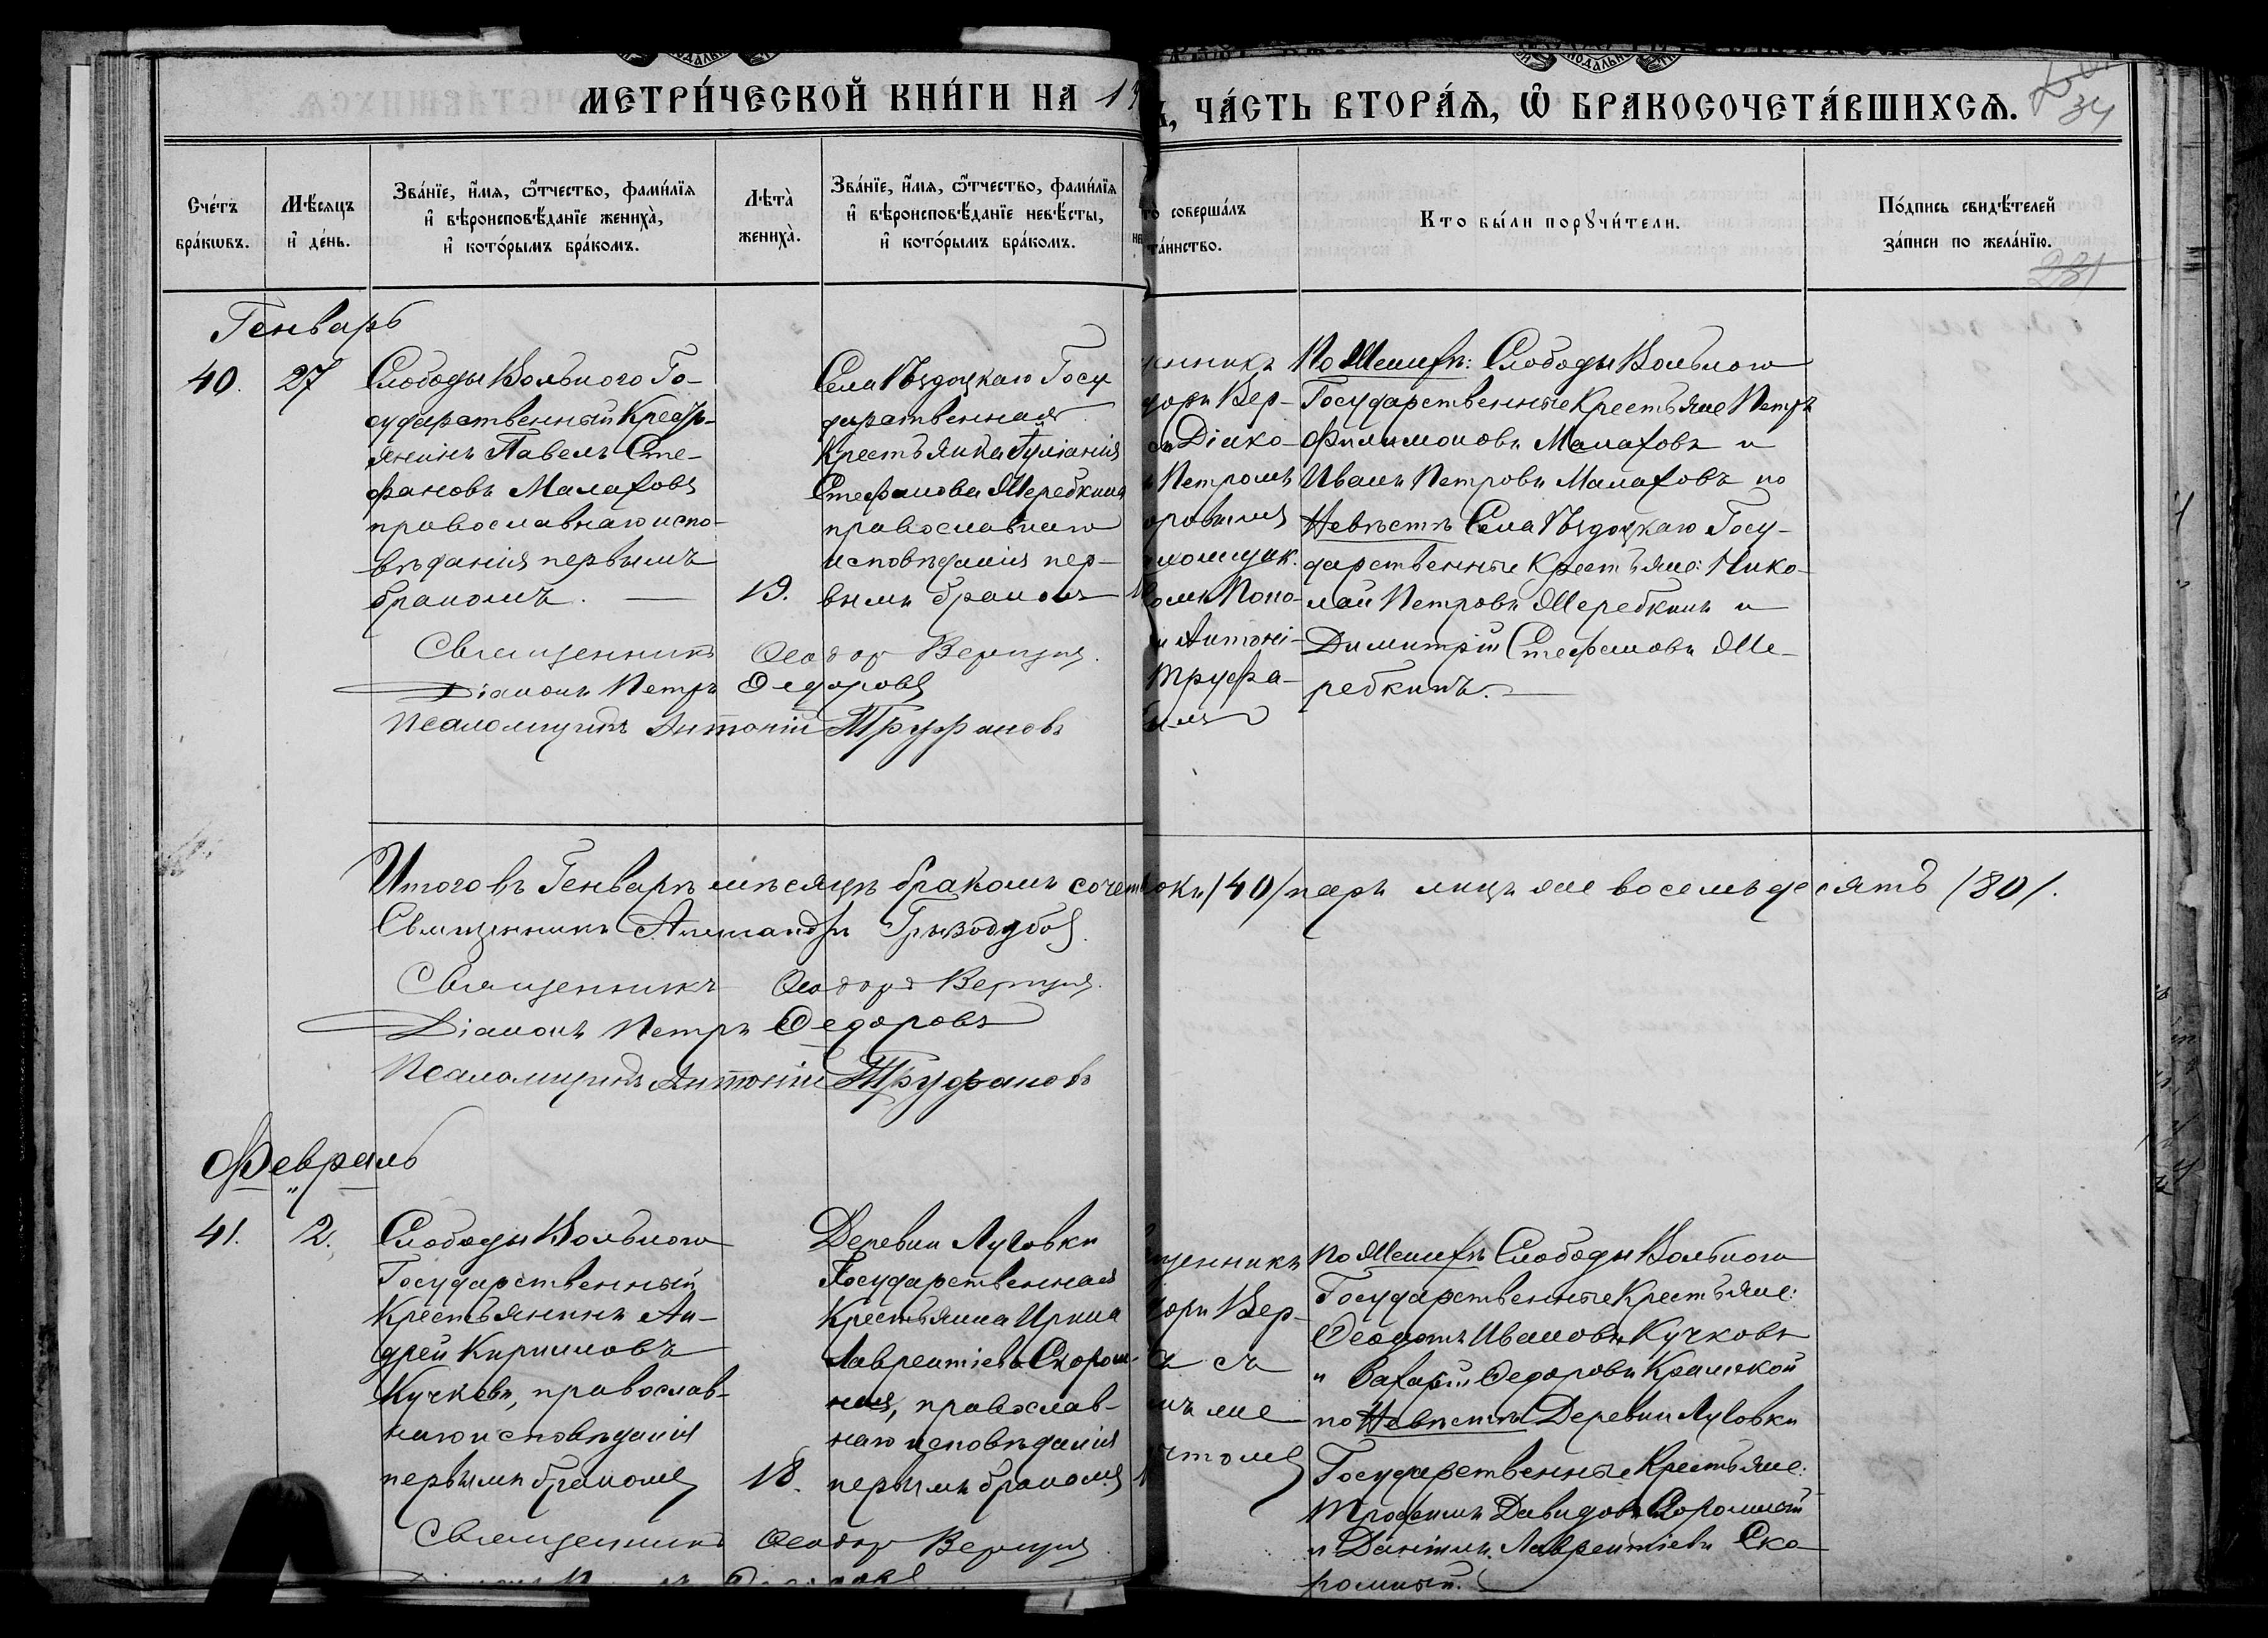 МЕТРИ́ЧЕСКОЙ КНИ́ГИ НА
ЧА́СТЬ ВТОРА́Я, Ѿ БРАКОСОЧЕТА́ВШИХСЯ.
34
Сче́тъ бра́кѡвъ.
Мѣ́сяцъ и҆ де́нь.
Зва́нїе, и҆́мя, ѻ҆́тчество, фами́лїя и҆ вѣроисповѣ́данїе жениха̀, и҆ кото́рымъ бра́комъ.
Лѣта̀ жениха̀.
Зва́нїе, и҆́мя, ѻ҆́тчество, фами́лїя и҆ вѣроисповѣ́данїе невѣ́сты, и҆ кото́рымъ бра́комъ.
соверша́лъ та́инство.
Кто бы́ли порꙋчи́тели.
По́дпись свидѣ́телей за́писи по жела́нїю.
281
Генварь
40. 27
Слободы Вольного Го-
сударственный Кресть-
янинъ Павелъ Сте-
фановъ Малаховъ
православнаго испо-
вѣданія первымъ
бракомъ. 19.
Села Ѣздоцкаго Госу
дарственная
Крестьянка Іуліанія
Стефанова Жеребкина
православнаго
исповѣданія пер-
вымъ бракомъ
Вер-
Діако-
Петромъ
Поно-
Антоні-
Труфа-
По Женихѣ: Слободы Вольного
Государственные Крестьяне Петръ
Филимоновъ Малаховъ и
Иванъ Петровъ Малаховъ по
Невѣстѣ Села Ѣздоцкаго Госу-
дарственные Крестьяне: Нико-
лай Петровъ Жеребкинъ и
Димитрій Стефановъ Же-
ребкинъ.
Священникъ Ѳеодор Верицкий
Діаконъ Петръ Ѳедоровъ
Псаломщикъ Антоній Труфановъ
Итого въ Генварѣ мѣсяцѣ бракомъ сочет /40/ паръ лицъ же восемьдесятъ /80/.
Священникъ Александръ Грызодубов
Священникъ Ѳеодоръ
Діаконъ Петръ Ѳедоровъ
Псаломщикъ Антоній Труфановъ
Февраль
41. 2.
Слободы Вольного
Государственный
Крестьянинъ Ан-
дрей Кириловъ
Кучковъ, православ-
наго исповѣданія
первымъ бракомъ 18.
Деревни Луговки
Государственная
Крестьянка Ирина
Лаврентіева Скором-
ная, православ-
наго исповѣданія
первымъ бракомъ
щенникъ
Вер-
съ
же
По Женихѣ Слободы Вольного
Государственные Крестьяне:
Ѳеодотъ Ивановъ Кучковъ
и Захарій Ѳедоровъ Крамской
по Невѣстѣ Деревни Луговки
Государственные Крестьяне:
Трофимъ Давидовъ Скоромный
и Даніилъ Лаврентіевъ Ско
ромный.
Священникъ Ѳеодор